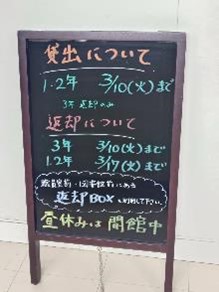 貸出について
1.2年 3/10(火)まで
3年 返却のみ
返却について
3年 3/10(火)まで
1.2年 3/17(火)まで
職員室前・図書館前にある
返却BOXへ
昼休みは 開館中